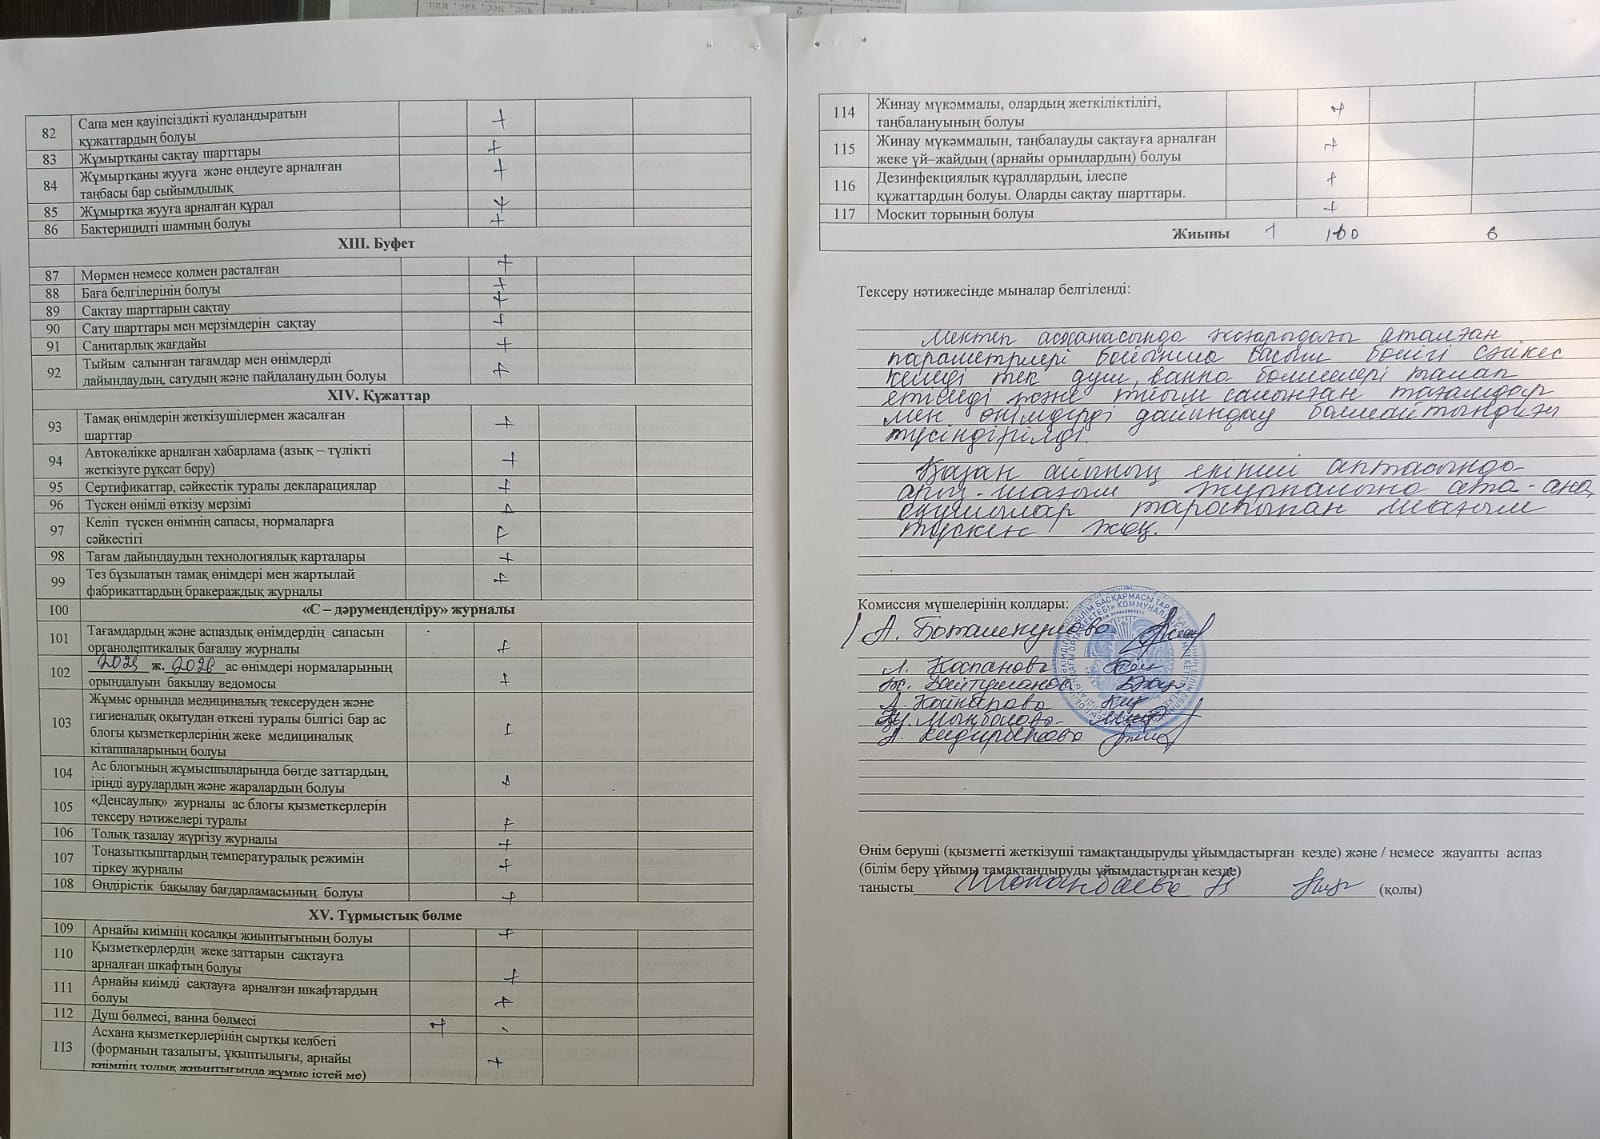 82 Сапа мен қауіпсіздікті куәландыратын
құжаттардың болуы +
83 Жұмыртқаны сақтау шарттары +
84 Жұмыртқаны жууға және өңдеуге арналған
таңбасы бар сыйымдылық +
85 Жұмыртқа жууға арналған құрал +
86 Бактерицидті шамның болуы +
XIII. Буфет
87 Мөрмен немесе қолмен расталған +
88 Баға белгілерінің болуы +
89 Сақтау шарттарын сақтау +
90 Сату шарттары мен мерзімдерін сақтау +
91 Санитарлық жағдайы +
92 Тыйым салынған тағамдар мен өнімдерді
дайындаудың, сатудың және пайдаланудың болуы +
XIV. Құжаттар
93 Тамақ өнімдерін жеткізушілермен жасалған
шарттар +
94 Автокөлікке арналған хабарлама (азық – түлікті
жеткізуге рұқсат беру) +
95 Сертификаттар, сәйкестік туралы декларациялар +
96 Түскен өнімді өткізу мерзімі +
97 Келіп түскен өнімнің сапасы, нормаларға
сәйкестігі +
98 Тағам дайындаудың технологиялық карталары +
99 Тез бұзылатын тамақ өнімдері мен жартылай
фабрикаттардың бракераждық журналы +
100 «С – дәрумендендіру» журналы
101 Тағамдардың және аспаздық өнімдердің сапасын
органолептикалық бағалау журналы +
102 2025 ж. 2026 ас өнімдері нормаларының
орындалуын бақылау ведомосы +
103 Жұмыс орнында медициналық тексеруден және
гигиеналық оқытудан өткені туралы білгісі бар ас
блогы қызметкерлерінің жеке медициналық
кітапшаларының болуы +
104 Ас блогының жұмысшыларында бөгде заттардың,
іріңді аурулардың және жаралардың болуы +
105 «Денсаулық» журналы ас блогы қызметкерлерін
тексеру нәтижелері туралы +
106 Толық тазалау жүргізу журналы +
107 Тоңазытқыштардың температуралық режимін
тіркеу журналы +
108 Өндірістік бақылау бағдарламасының болуы +
XV. Тұрмыстық бөлме
109 Арнайы киімнің қосалқы жиынтығының болуы +
110 Қызметкерлердің жеке заттарын сақтауға
арналған шкафтың болуы +
111 Арнайы киімді сақтауға арналған шкафтардың
болуы +
112 Душ бөлмесі, ванна бөлмесі +
113 Асхана қызметкерлерінің сыртқы келбеті
(форманың тазалығы, ұқыптылығы, арнайы
киімнің толық жиынтығында жұмыс істей ме) +
114 Жинау мүкәммалы, олардың жеткіліктілігі,
таңбалануының болуы +
115 Жинау мүкәммалын, таңбалауды сақтауға арналған
жеке үй–жайдың (арнайы орындардың) болуы +
116 Дезинфекциялық құралдардың, ілеспе
құжаттардың болуы. Оларды сақтау шарттары. +
117 Москит торының болуы +
Жиыны 1 100
Тексеру нәтижесінде мыналар белгіленді:
Мектеп асханасында жоғарыдағы аталған
параметрлері бойынша басым бөлігі сәйкес
келеді тек душ, ванна бөлмелері талап
етіледі және тыйым салынған тағамдар
мен өнімдерді дайындау болмайтындығы
түсіндірілді.
Қазан айының екінші аптасында
арыз-шағым журналына ата-ана,
оқушылар тарапынан шағым
түскен жоқ.
Комиссия мүшелерінің қолдары:
А. Боташекунова
Л. Капанова
Ж. Байтуманов
А. Кайнарова
А. Кидирбекова
Өнім беруші (қызметті жеткізуші тамақтандыруды ұйымдастырған кезде) және / немесе жауапты аспаз
(білім беру ұйымы тамақтандыруды ұйымдастырған кезде)
танысты Шопанбаева (қолы)